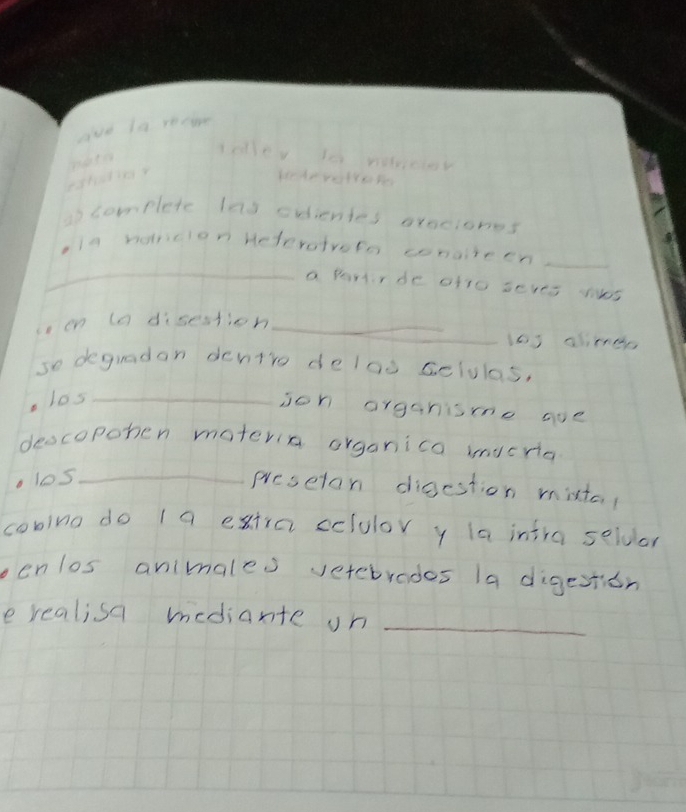 que la
nota taller la nutricion
estudiar Heterotrofa
a) complete las cidientes oraciones
• la nutricion Heterotrofa consite en ____
____ a Partir de otro seres vivos
• en la disestion ____ los alimen
se degradan dentro de las celulas.
• los ____ son organismo que
descoponen materia organica muerta
• los ____ presetan digestion mixta,
cobina do la extra celular y la infra selular
• en los animales vetebrados la digestión
e realisa mediante un ____